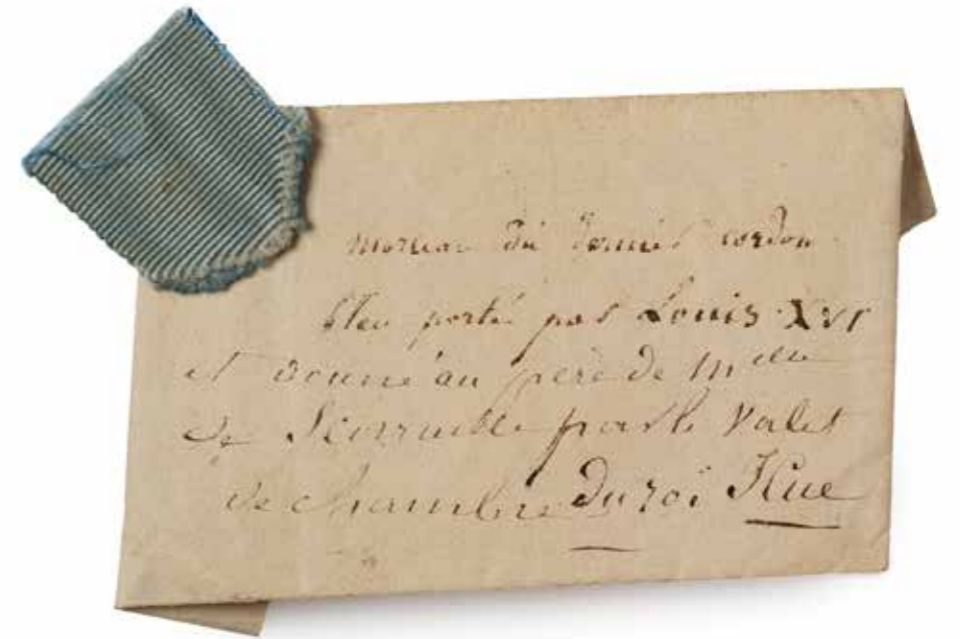 morceau du dernier cordon
bleu porté par Louis XVI
et donné au père de Melle
de par le Valet
de chambre du roi Hue